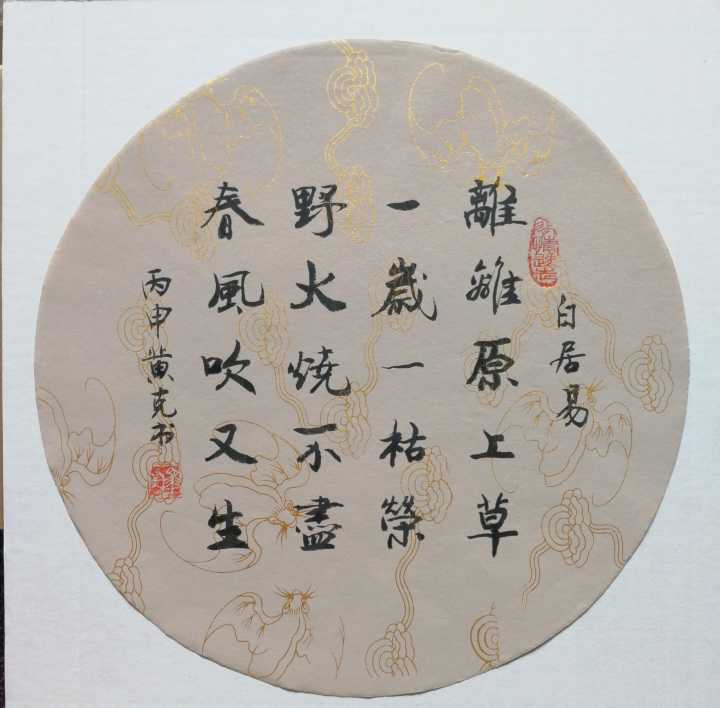 白居易
離離原上草
一歲一枯榮
野火燒不盡
春風吹又生
丙申黃克书